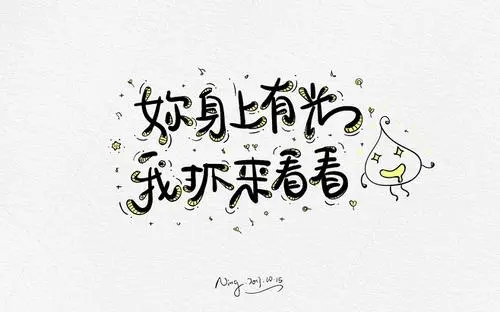 妳身上有光
我抓来看看
Ning.2017.10.15